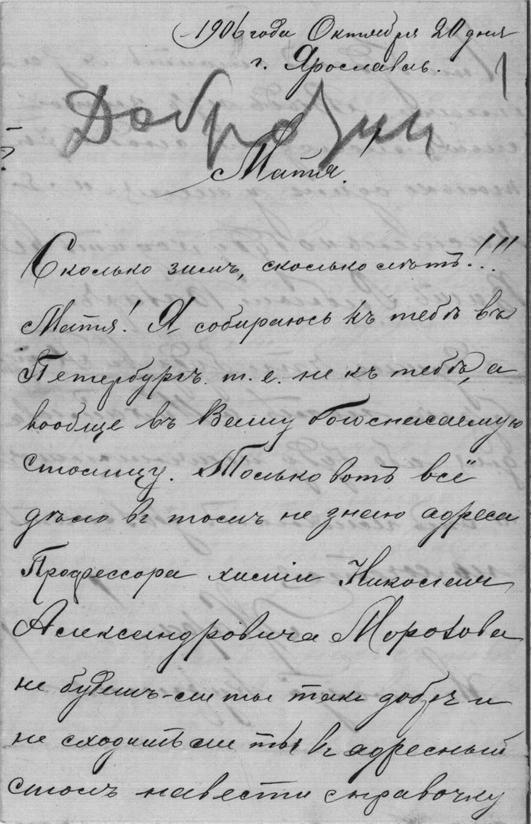 1906 года Октября 20 дня
г. Ярославль.
Добровин
Матя!
Сколько зимъ, сколько лѣтъ!!!
Матя! Я собираюсь къ тебѣ въ
Петербургъ. т. е. не къ тебѣ, а
вообще въ Вашу богоспасаемую
столицу. Только вотъ всё
дѣло въ томъ не знаю адреса
Профессора химіи Николая
Александровича Морозова
не будешь-ли ты такъ добръ и
не сходишь ли ты въ адресный
столъ навести справочку